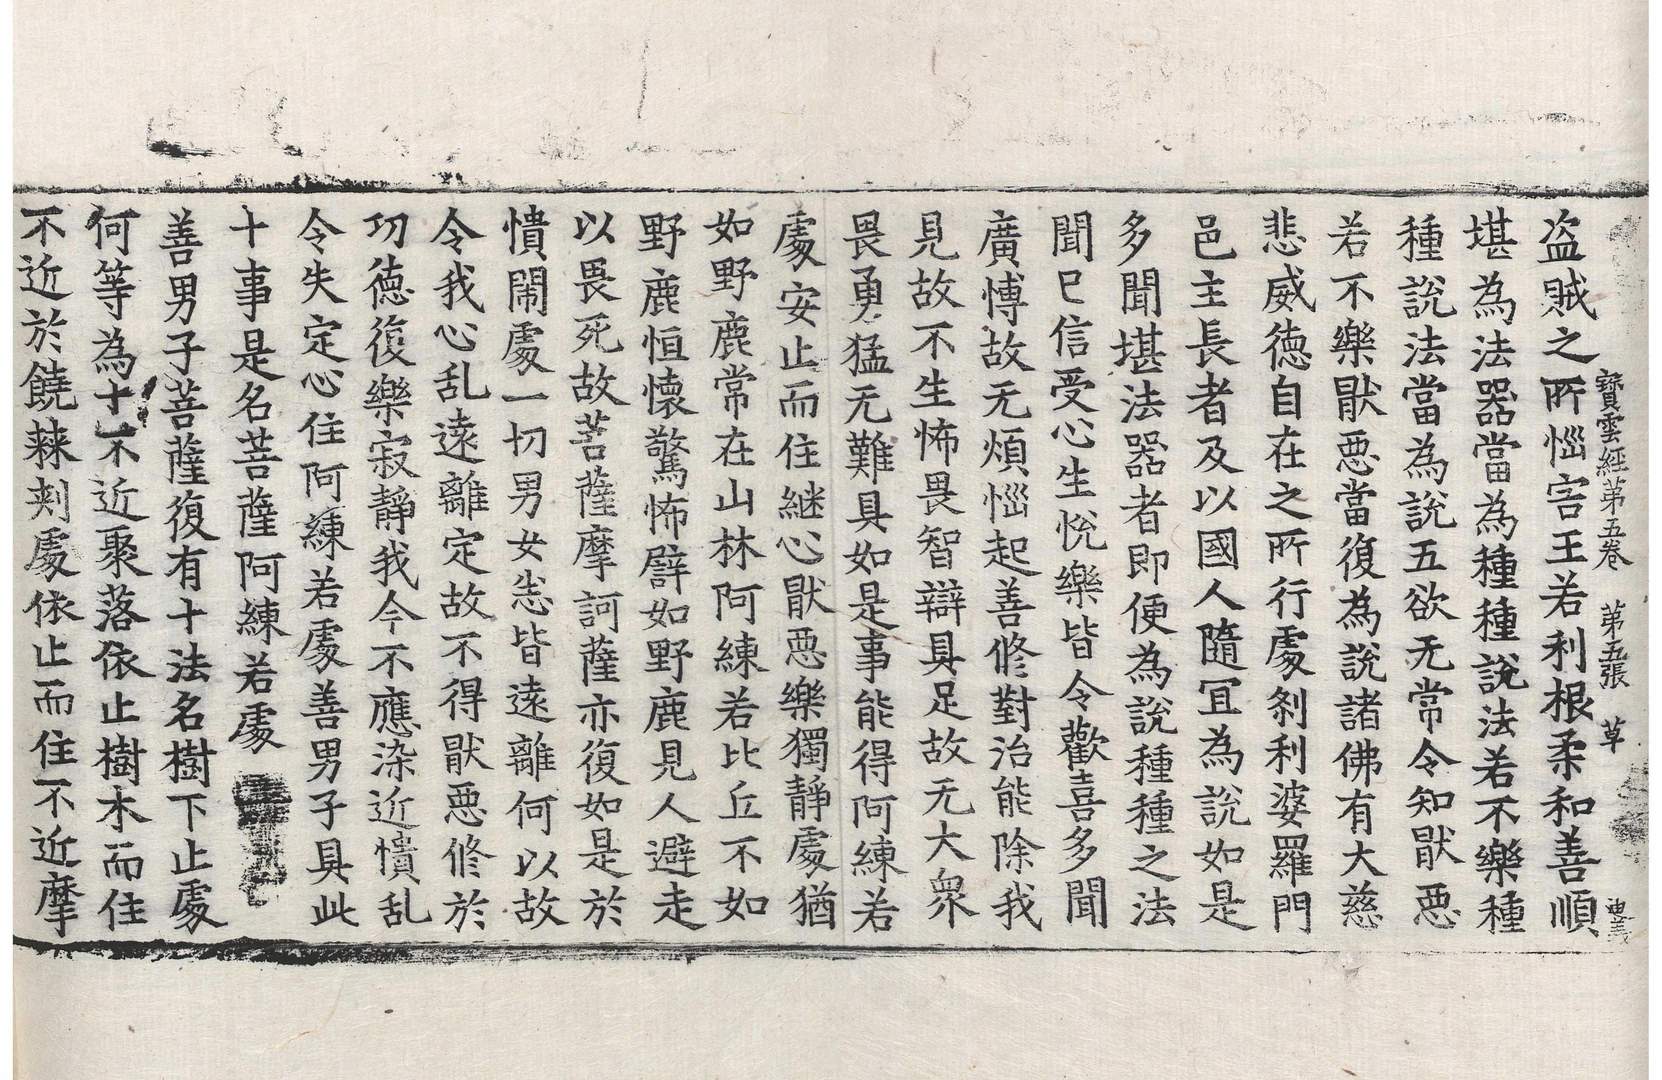 寶雲經第五卷 第五張 草
盗賊之所惱害王若利根柔和善順
堪為法器當為種種說法若不樂種
種說法當為說五欲无常令知猒惡
若不樂猒惡當復為說諸佛有大慈
悲威德自在之所行處刹利婆羅門
邑主長者及以國人隨冝為說如是
多聞堪法器者即便為說種種之法
聞已信受心生悅樂皆令歡喜多聞
廣博故无煩惱起善修對治能除我
見故不生怖畏智辯具足故无大衆
畏勇猛无難具如是事能得阿練若
處安止而住継心猒惡樂獨静處猶
如野鹿常在山林阿練若比丘不如
野鹿恒懷驚怖譬如野鹿見人避走
以畏死故菩薩摩訶薩亦復如是於
憒閙處一切男女恚皆遠離何以故
令我心乱遠離定故不得猒惡修於
功徳復樂寂静我今不應染近憒乱
令失定心住阿練若處善男子具此
十事是名菩薩阿練若處
善男子菩薩復有十法名樹下止處
何等為十不近聚落依止樹木而住
不近於饒棘刺處依止而住不近摩